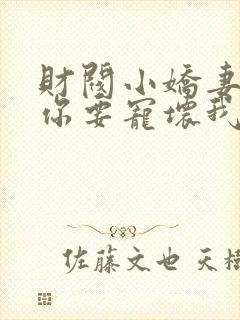 財閥小嬌妻
你要寵壞我
佐藤文也 天樹